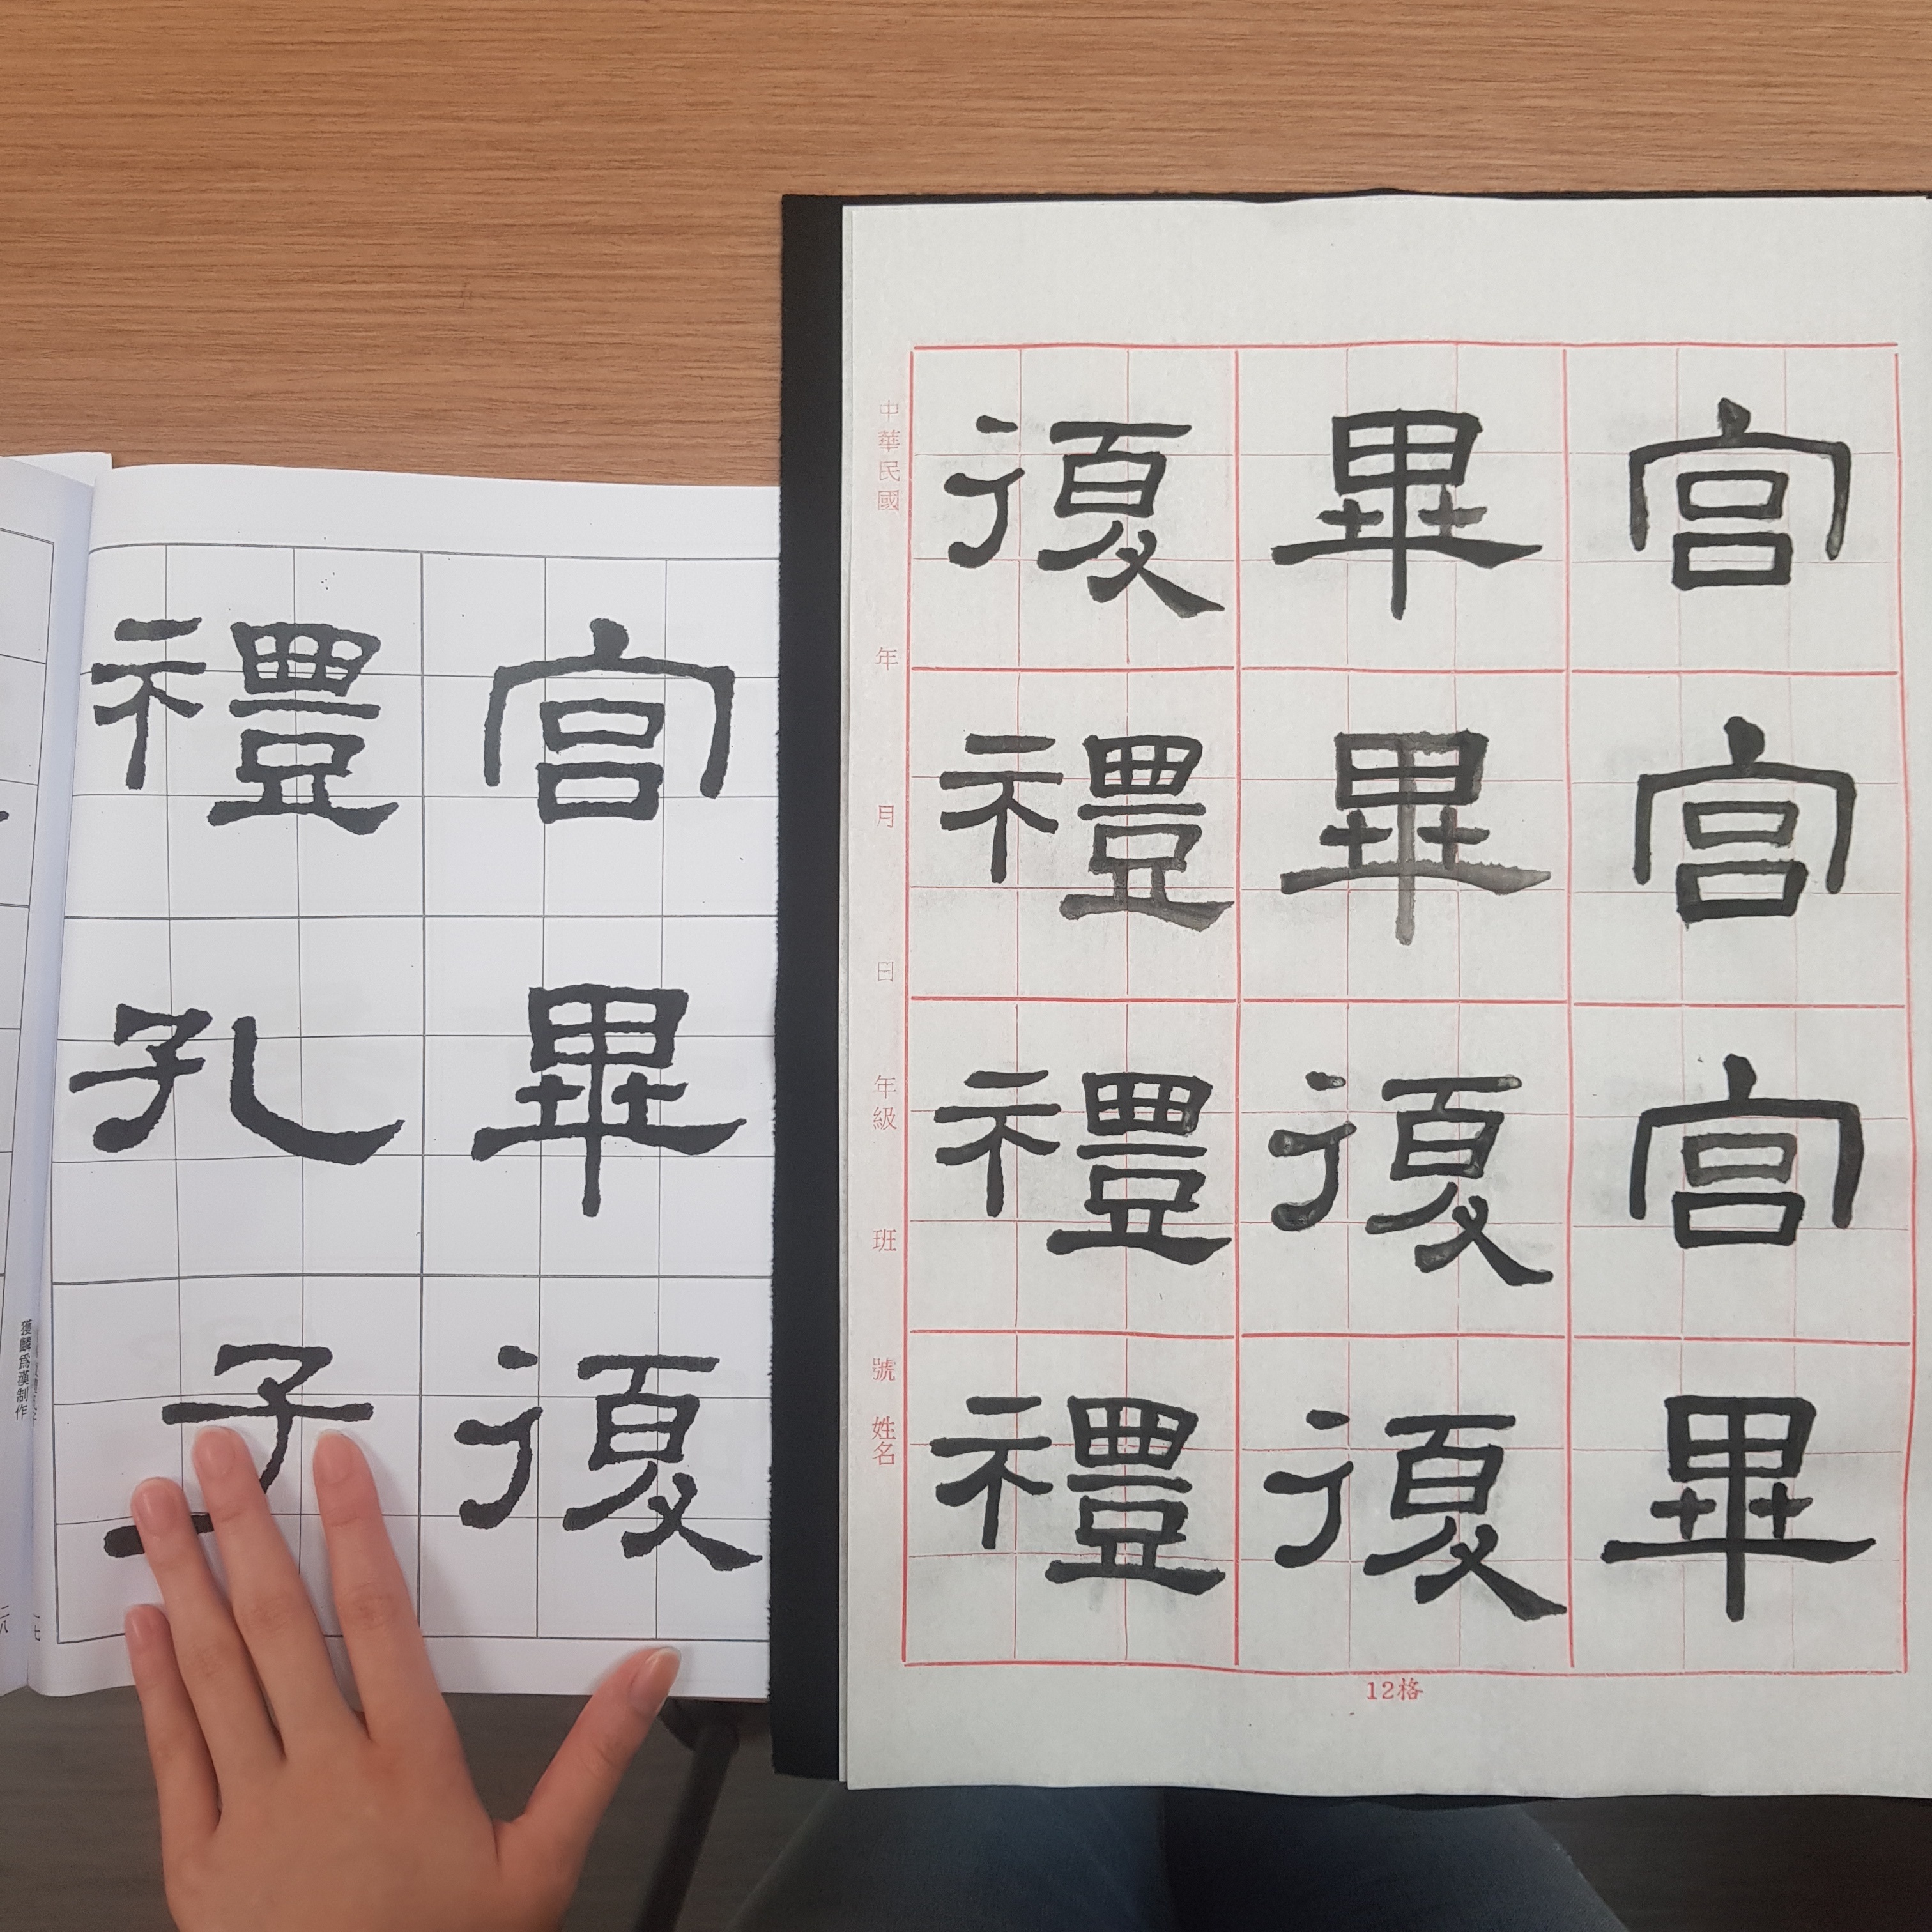 宮宮宮畢
畢畢復復
復禮禮禮
中華民國 年 月 日 年級 班 號 姓名
12格
宮畢復
禮孔子
獲麟爲漢制作